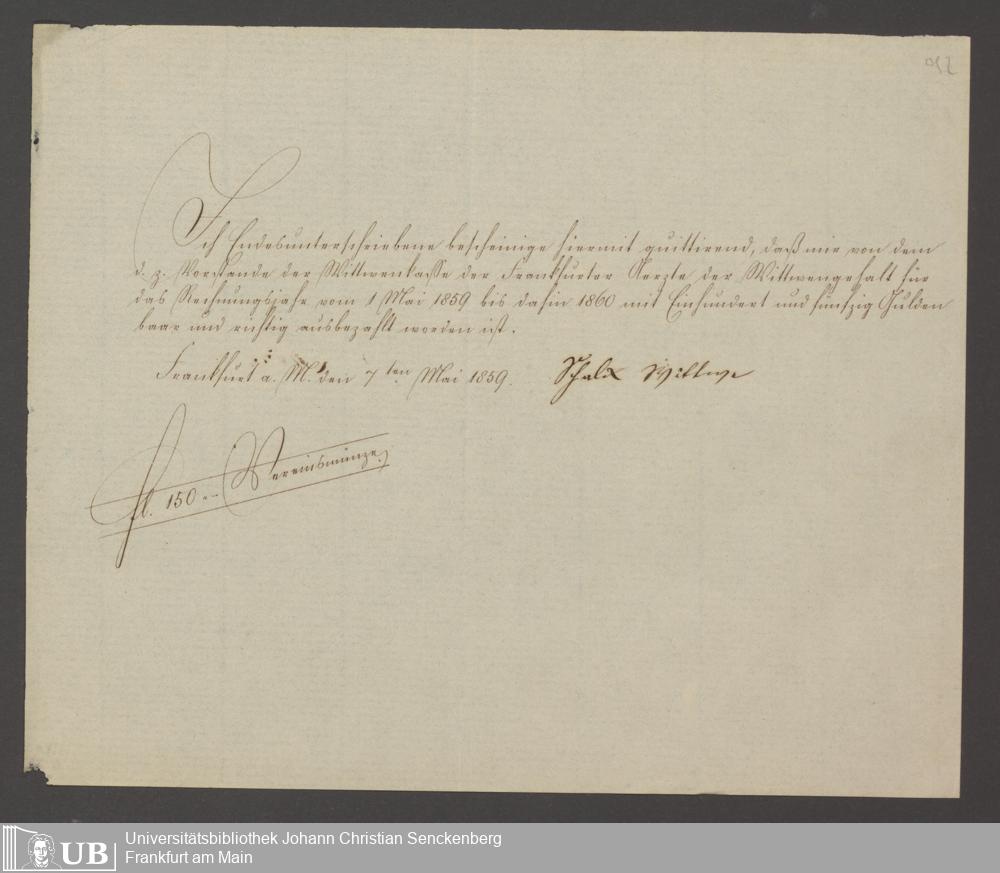 Ich Endesunterschriebene bescheinige hiermit quittirend, daß mir von dem
d. z. Vorstande der Wittwenkasse der Frankfurter Aerzte der Wittwengehalt für
das Rechnungsjahr vom 1 Mai 1859 bis dahin 1860 mit Einhundert und fünfzig Gulden
baar und richtig ausbezahlt worden ist.
Frankfurt a. M. den 7ten Mai 1859. Wittwe
fl. 150 Vereinsmünze.
UB Universitätsbibliothek Johann Christian Senckenberg
Frankfurt am Main